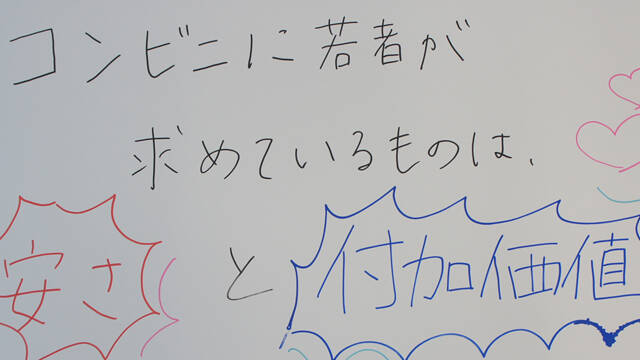 コンビニに若者が
求めているものは、
安さと付加価値